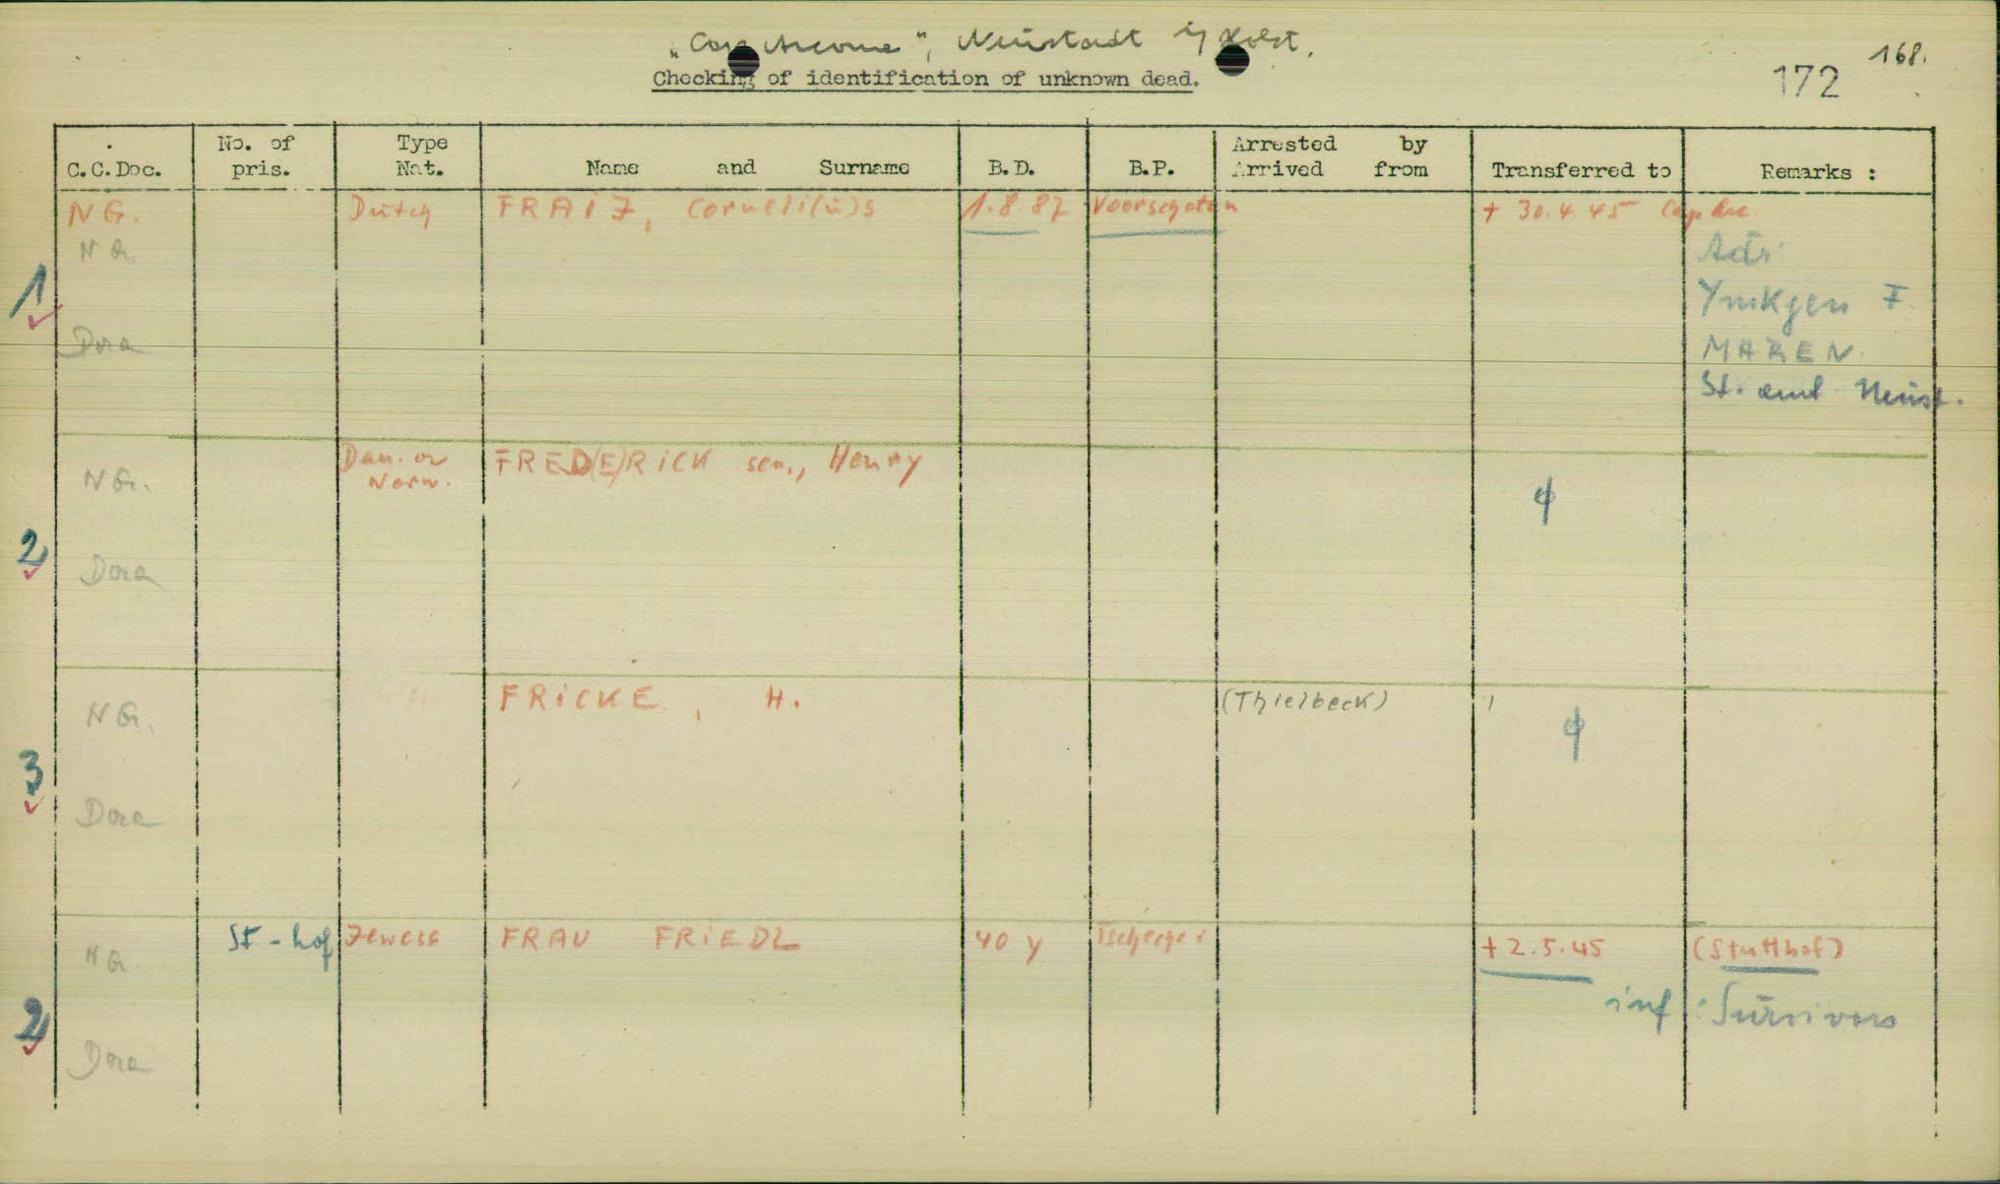 „Cap Arcona", Neustadt i/Holst.
Checking of identification of unknown dead.
168.
172
C.C.Doc. No. of pris. Type Nat. Name and Surname B.D. B.P. Arrested by Arrived from Transferred to Remarks :
NG. Dutch FRAIJ, Corneli(u)s 1.8.87 Voorschoten + 30.4.45 Cap Arc.
NG. Adr:
1 F.
Dora MAREN.
St. amt Neust.
NG. Dan. or Norw. FRED(E)RICK sen., Henry
2
Dora
NG. FRICKE, H. (Thielbeck)
3
Dora
NG. St-hof Jewess FRAU FRIEDL 40 y Tschechei + 2.5.45 (Stutthof)
inf: Survivors
2
Dora